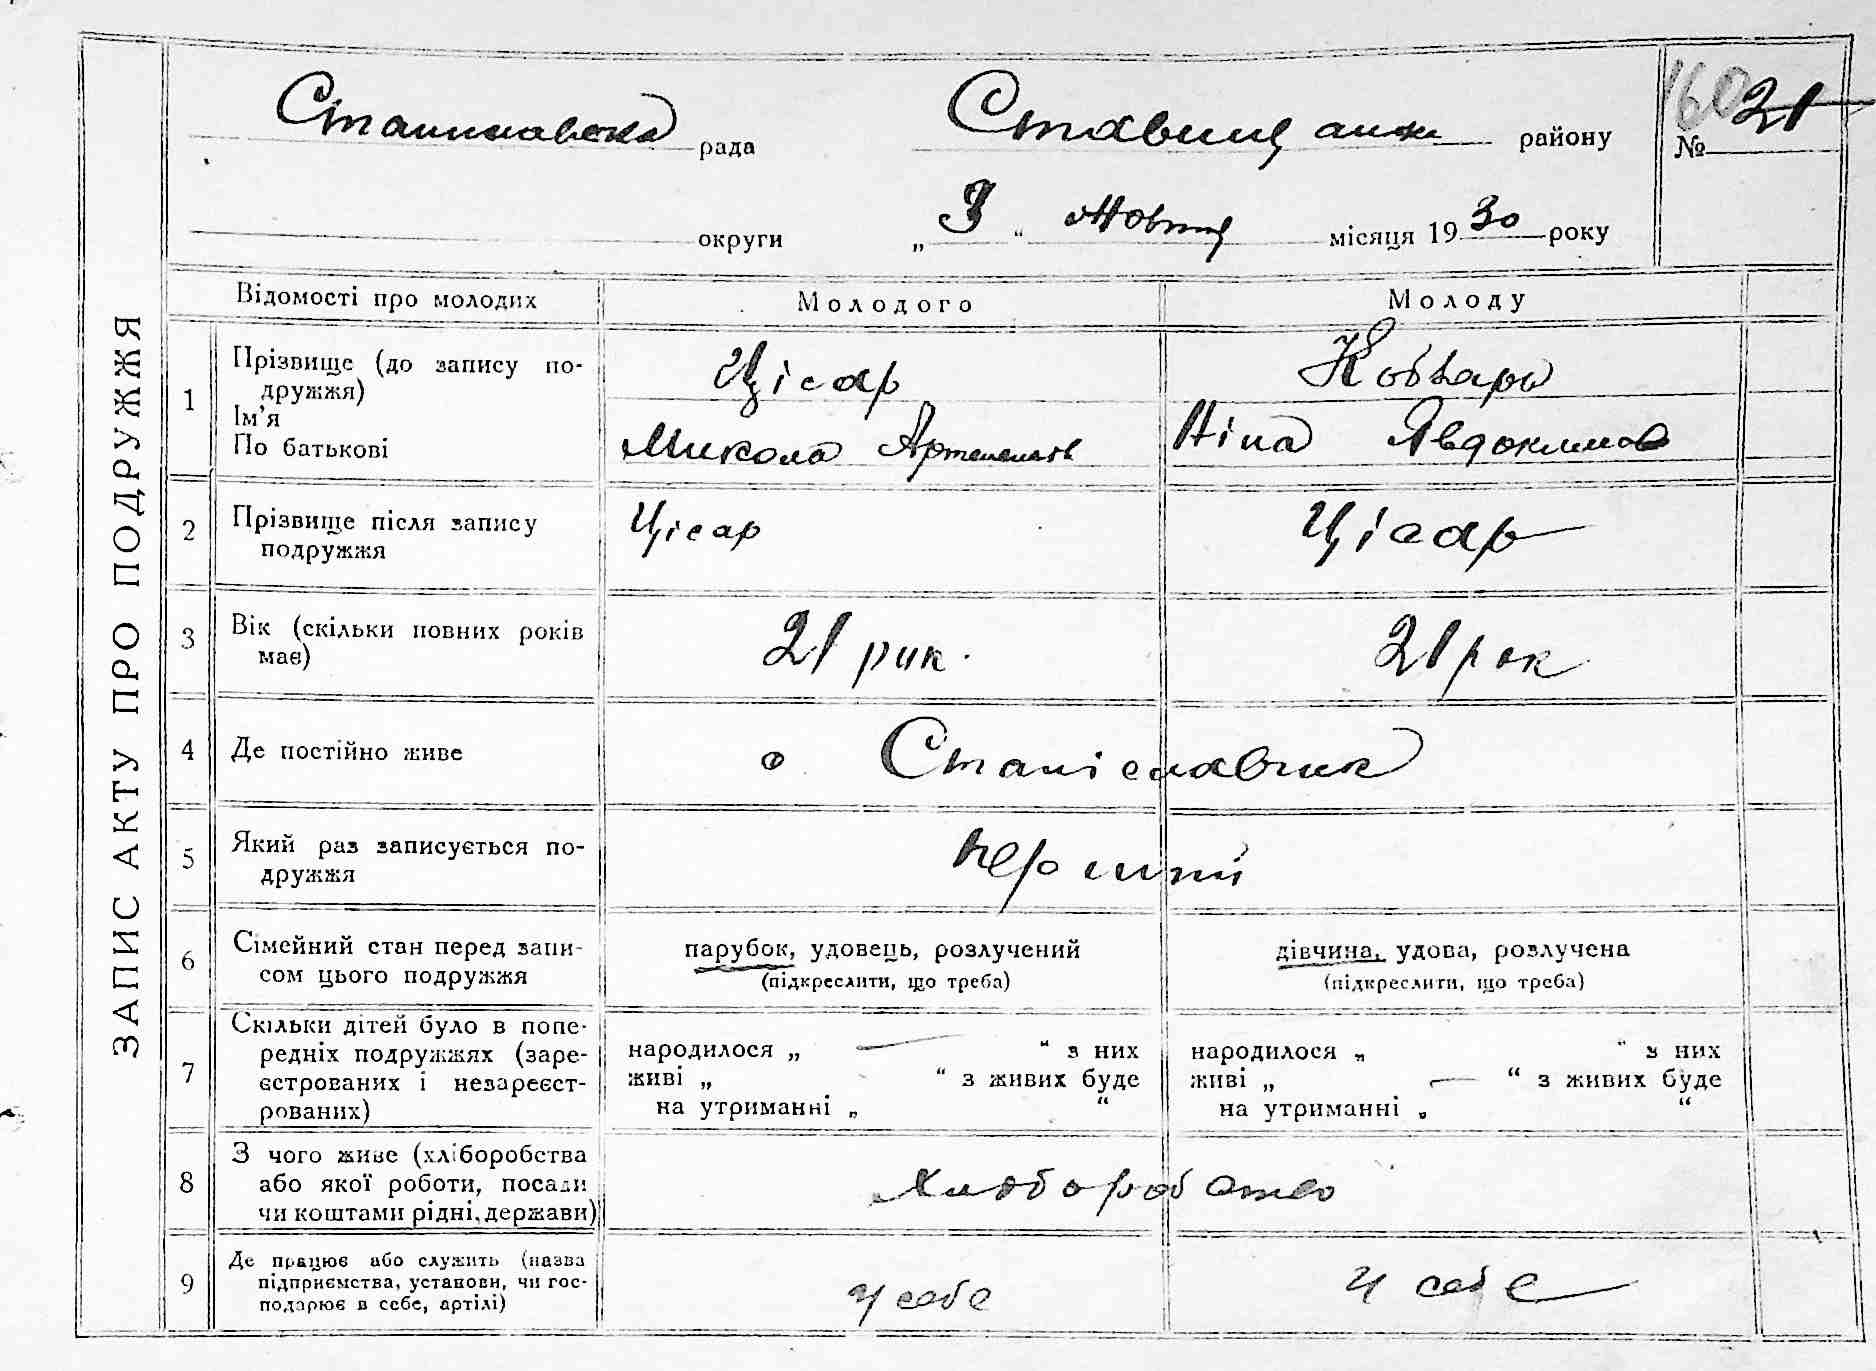 ЗАПИС АКТУ ПРО ПОДРУЖЖЯ
рада району № 21
160
округи „ 3 “ місяця 1930 року
Відомості про молодих Молодого Молоду
1 Прізвище (до запису по-
дружжя)
Ім’я
По батькові
Цісар
Микола
Кобзарь
Ніна Явдокимов
2 Прізвище після запису
подружжя
Цісар Цісар
3 Вік (скільки повних років
має)
21 рик. 21 рок
4 Де постійно живе
с Станіславчик
5 Який раз записується по-
дружжя
перший
6 Сімейний стан перед запи-
сом цього подружжя
парубок, удовець, розлучений
(підкреслити, що треба)
дівчина, удова, розлучена
(підкреслити, що треба)
7 Скільки дітей було в попе-
редніх подружжях (заре-
єстрованих і незареєст-
рованих)
народилося „ — “ з них
живі „ “ з живих буде
на утриманні „ “
народилося „ “ з них
живі „ — “ з живих буде
на утриманні „ “
8 З чого живе (хліборобства
або якої роботи, посади
чи коштами рідні, держави)
9 Де працює або служить (назва
підприємства, установи, чи гос-
подарює в себе, артілі)
у себе у себе